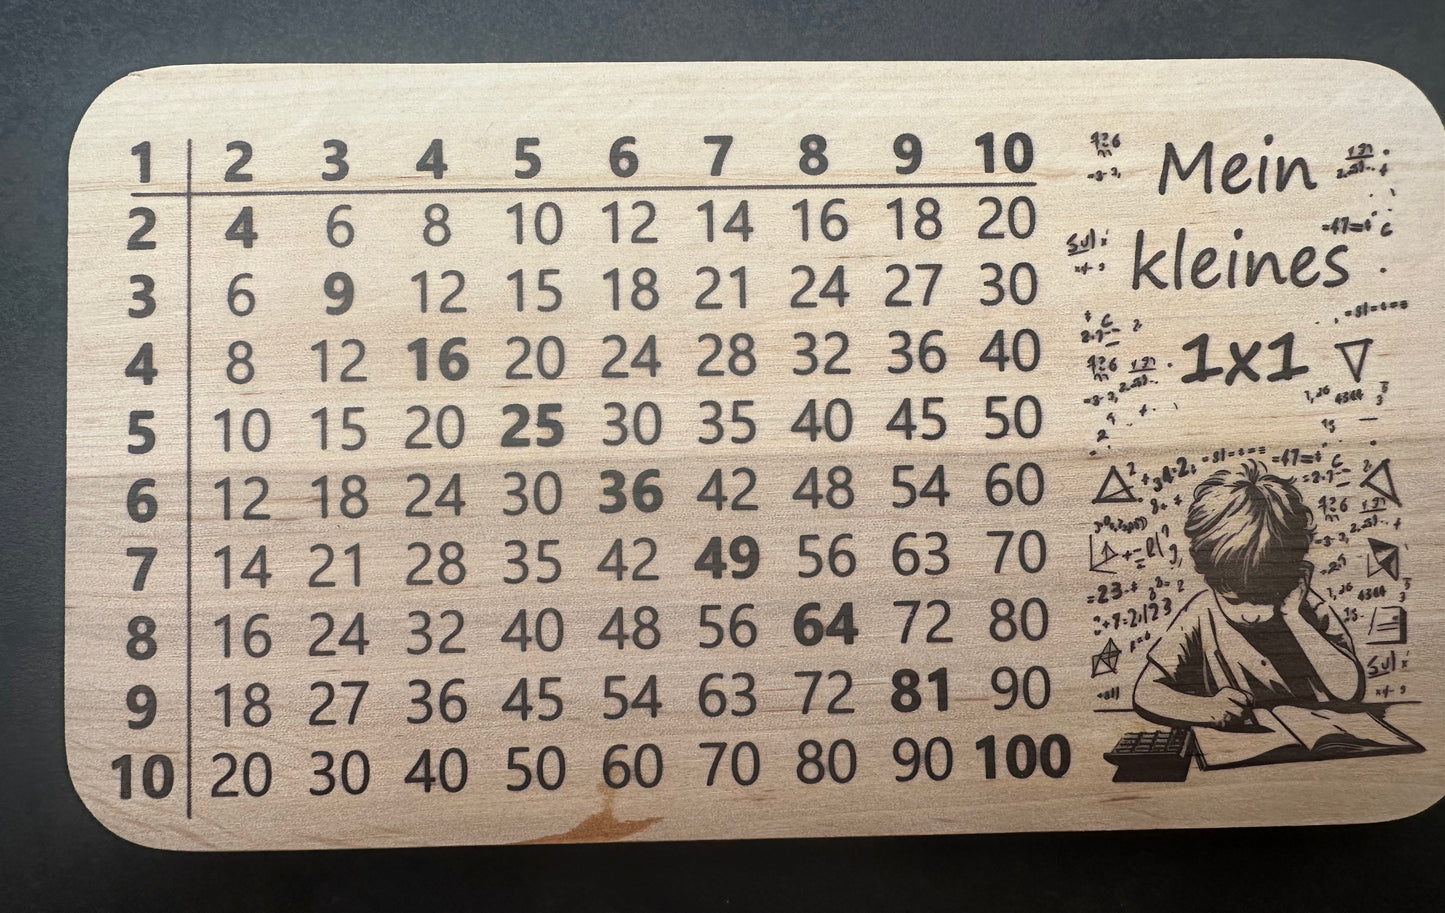 1 2 3 4 5 6 7 8 9 10
2 4 6 8 10 12 14 16 18 20
3 6 9 12 15 18 21 24 27 30
4 8 12 16 20 24 28 32 36 40
5 10 15 20 25 30 35 40 45 50
6 12 18 24 30 36 42 48 54 60
7 14 21 28 35 42 49 56 63 70
8 16 24 32 40 48 56 64 72 80
9 18 27 36 45 54 63 72 81 90
10 20 30 40 50 60 70 80 90 100
Mein
kleines
1x1